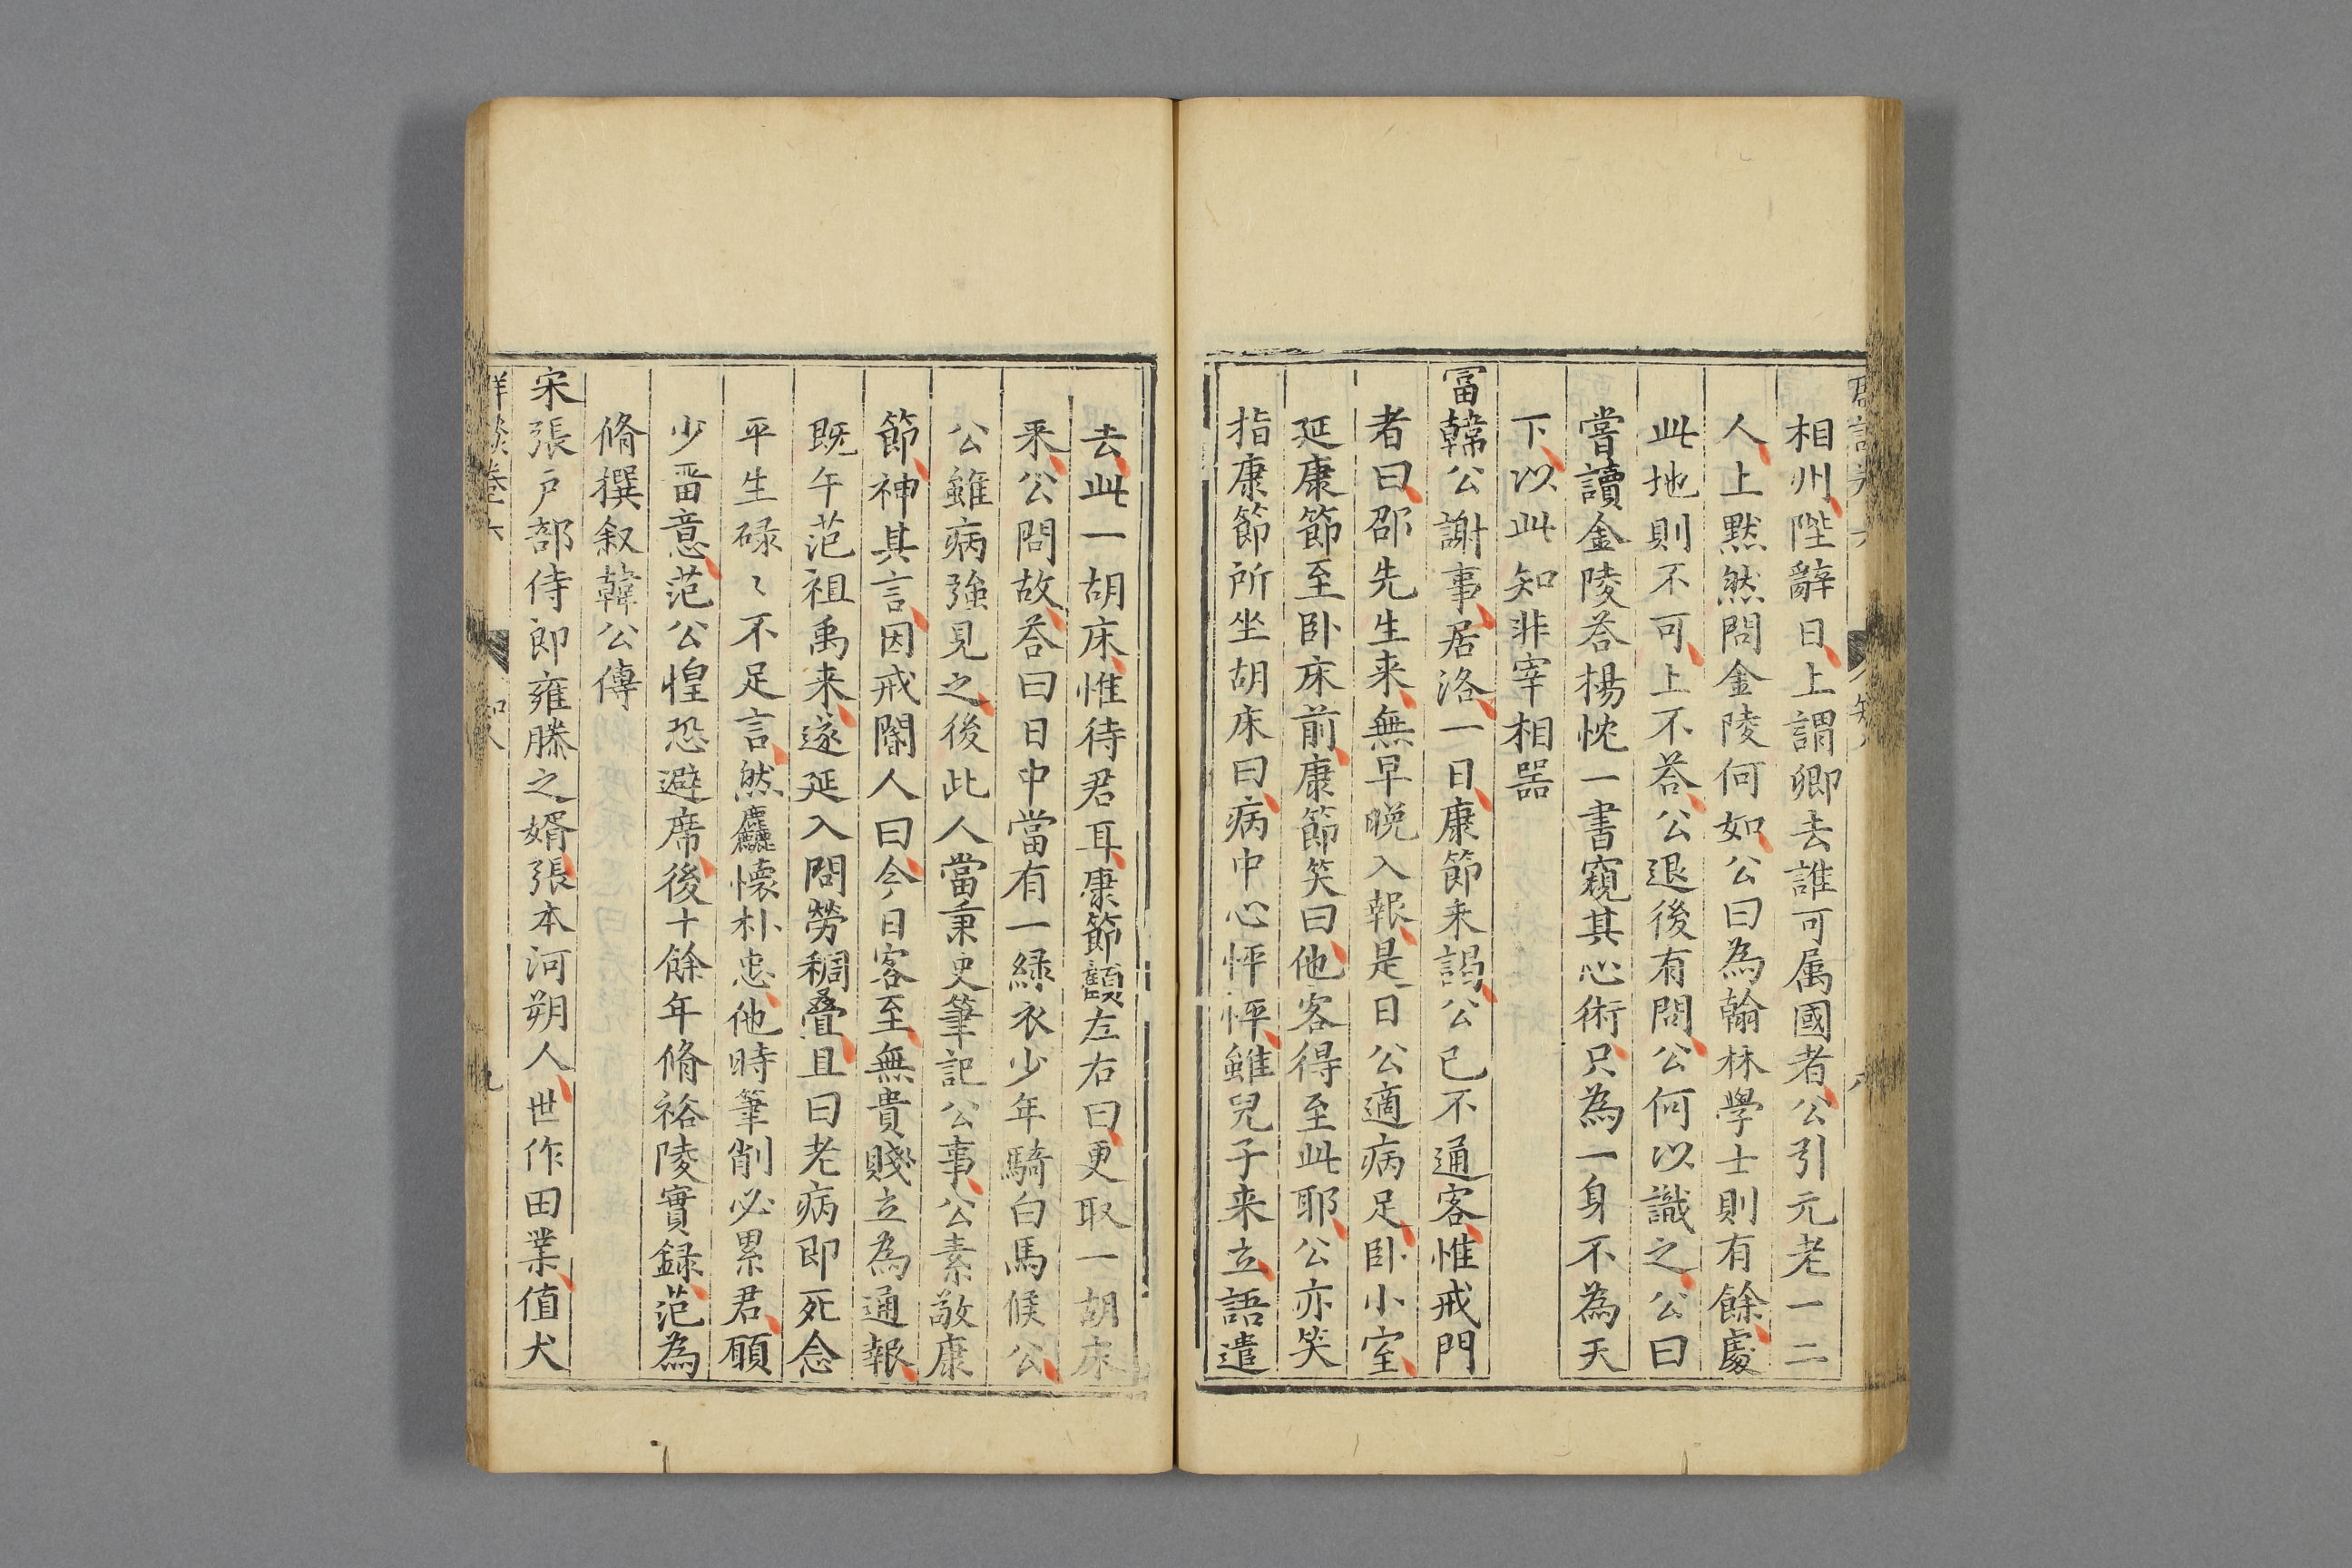 相州陛辭日上謂卿去誰可属國者公引元老一二
人上黙然問金陵何如公曰為翰林學士則有餘處
此地則不可上不荅公退後有問公何以識之公曰
嘗讀金陵荅楊忱一書窺其心術只為一身不為天
下以此知非宰相噐
冨韓公謝事居洛一日康節来謁公已不通客惟戒門
者曰邵先生来無早晚入報是日公適病足卧小室
延康節至卧床前康節笑曰他客得至此耶公亦笑
指康節所坐胡床曰病中心怦怦雖兒子来立語遣
去此一胡床惟待君耳康節顧左右曰更取一胡床
来公問故荅曰日中當有一緑衣少年騎白馬候公
公雖病強見之後此人當秉史筆記公事公素敬康
節神其言因戒閽人曰今日客至無貴賤立為通報
既午范祖禹来遂延入問勞稠疊且曰老病即死念
平生碌〻不足言然麤懐朴忠他時筆削必累君願
少畱意范公惶恐避席後十餘年脩裕陵實録范為
脩撰叙韓公傳
宋張戸部侍郎雍滕之婿張本河朔人世作田業值犬